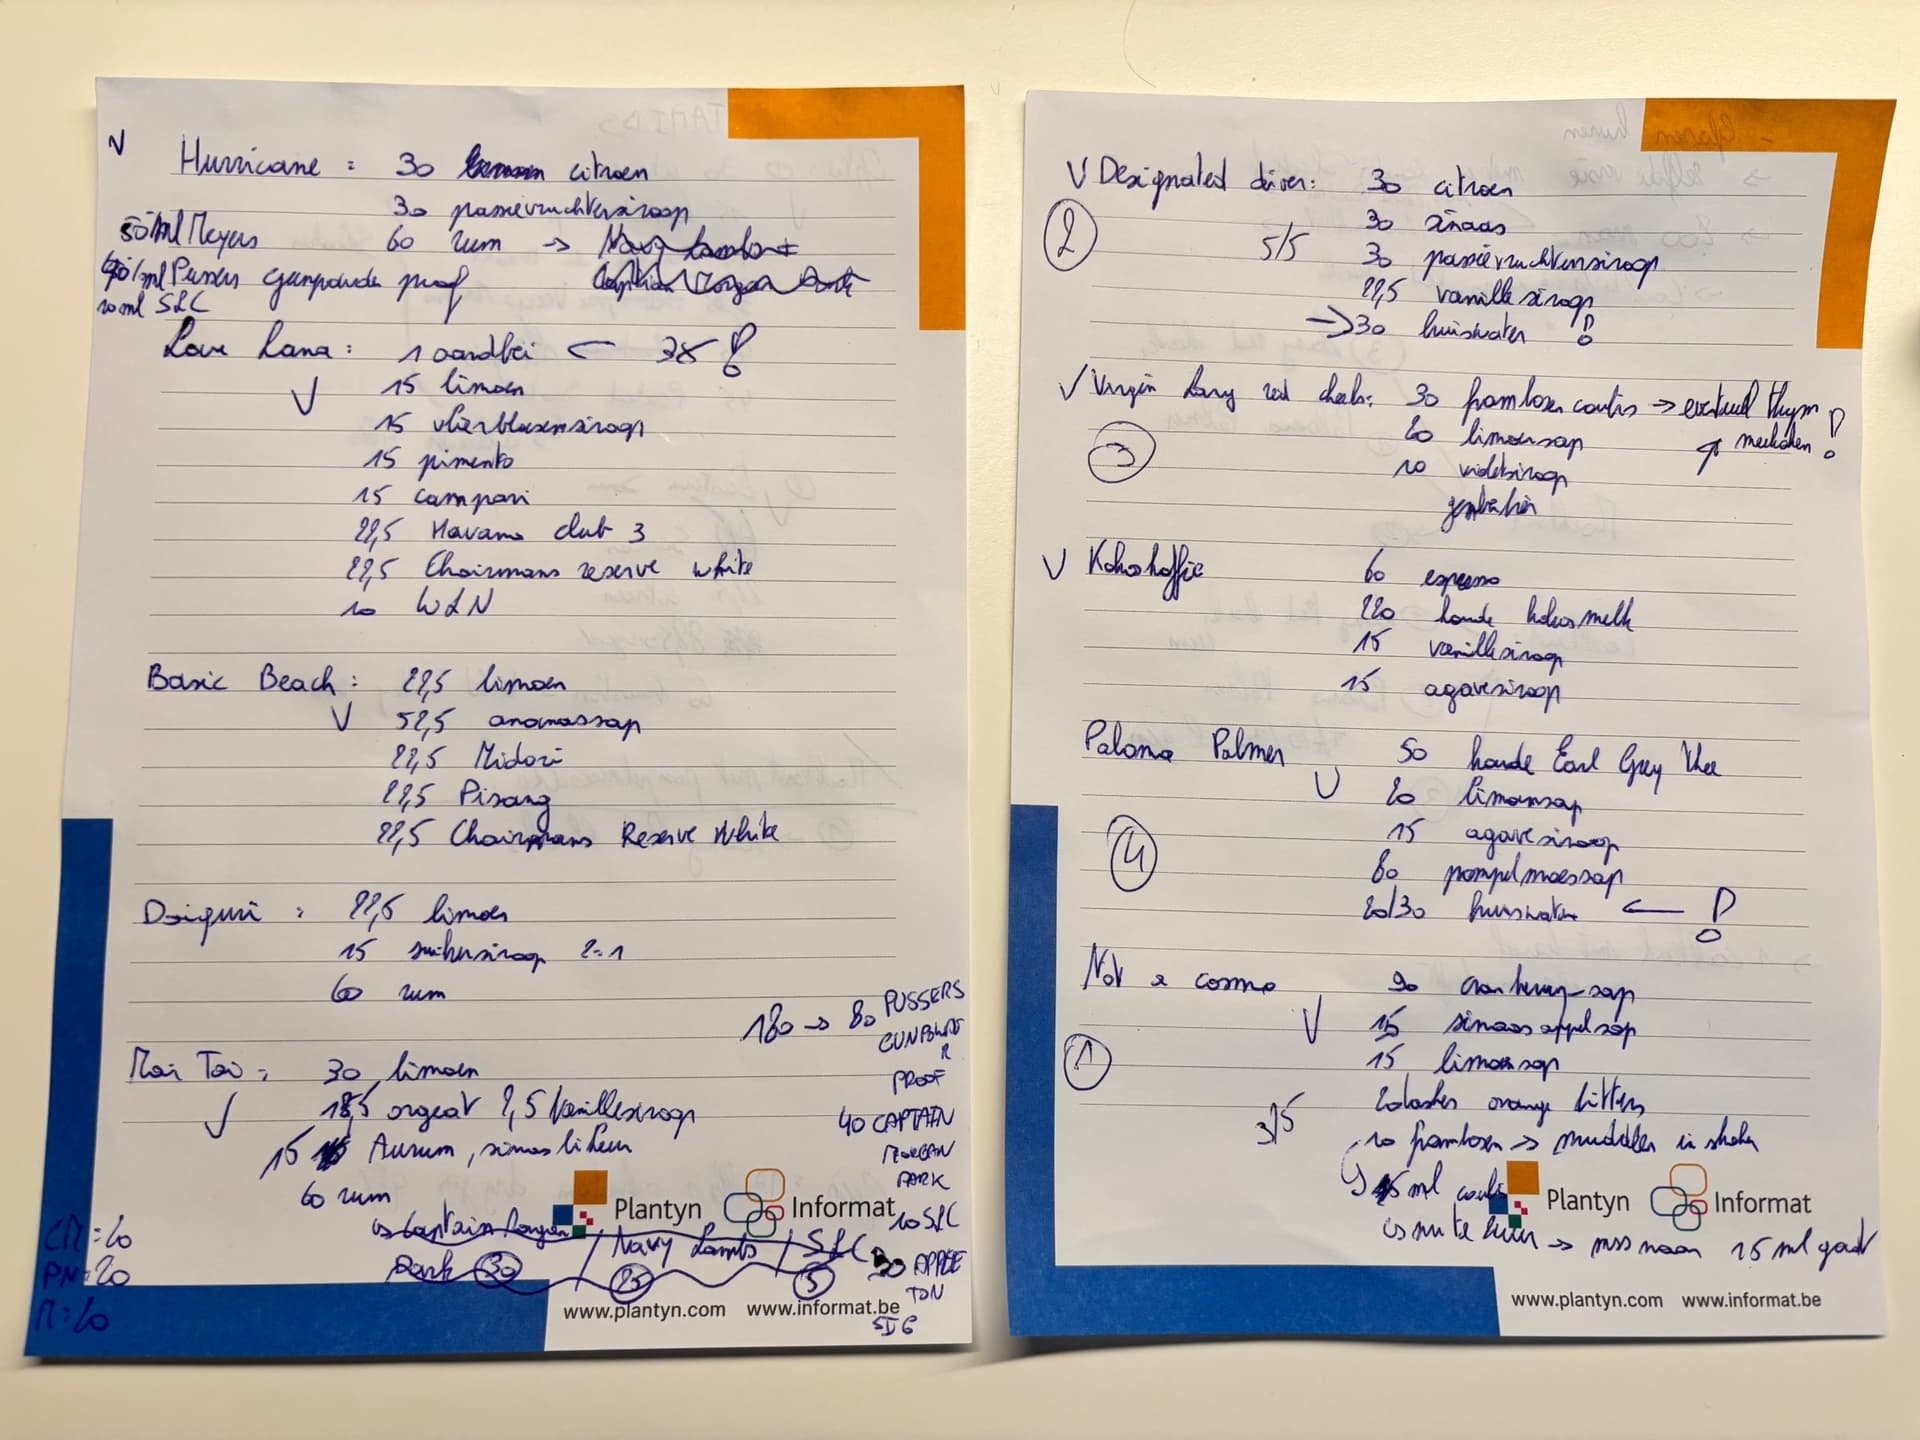 V
Hurricane : 30 citroen
30 passievruchtensiroop
60 rum →
50 ml Meyers
ml Pussers gunpowder proof
10 ml SLC
Love Lana : 1 aardbei ←
V
15 limoen
15 vlierbloesemsiroop
15 pimento
15 campari
22,5 Havana club 3
22,5 Chairmans reserve white
10 W&N
Basic Beach : 22,5 limoen
V 52,5 ananassap
22,5 Midori
22,5 Pisang
22,5 Chairmans Reserve White
Daiquiri : 22,5 limoen
15 suikersiroop 2:1
60 rum
Mai Tai : 30 limoen
V orgeat 2,5 Vanillesiroop
15 Aurum, sinaslikeur
60 rum
Captain Morgan / Navy Lambs / SLC
Dark 30 25 5
180 → 80 PUSSERS
GUNPOWDE
R
PROOF
40 CAPTAIN
MORGAN
DARK
10 SLC
30 APPLE
TON
SIG
CM = 20
PN = 20
M = 20
Plantyn Informat
www.plantyn.com www.informat.be
V Designated driver : 30 citroen
2
30 sinaas
5/5 30 passievruchtensiroop
22,5 vanillesiroop
→ 30 bruiswater !
V Virgin Lary red cheeks : 30 frambozen coulis → eventueel thym !
3
20 limoensap
10 violetsiroop
gemberbier
V Kokoskoffie 60 espresso
220 koude kokosmelk
15 vanillesiroop
15 agavesiroop
Paloma Palmer 50 koude Earl Grey thee
V 20 limoensap
15 agavesiroop
4
80 pompelmoessap
20/30 bruiswater ← !
Not a cosmo 90 cranberry-sap
V 15 sinaasappelsap
1
15 limoensap
2 dashes orange bitters
3/5
10 frambozen → muddelen in shaker
ml coulis
is nu te zuur → mss naar 15 ml gaat
Plantyn Informat
www.plantyn.com www.informat.be